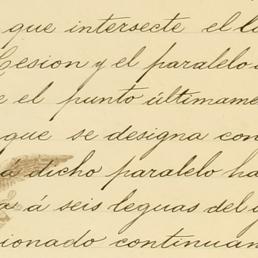 que intersecte el
Cesion y el paralelo
el punto últimame
que se designa con
á dicho paralelo ha
á seis leguas del
ionado continuan